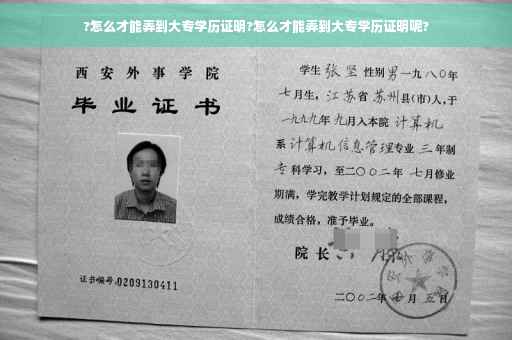 ?怎么才能弄到大专学历证明?怎么才能弄到大专学历证明呢?
西安外事学院
毕业证书
证书编号:0209130411
学生 张坚 性别 男 一九八〇年
七月生, 江苏省 苏州 县(市)人, 于
一九九九年 九月入本院 计算机
系 计算机信息管理 专业 三 年制
专 科学习, 至二〇〇二年 七月修业
期满, 学完教学计划规定的全部课程,
成绩合格, 准予毕业。
院长
二〇〇二年 七月 五日